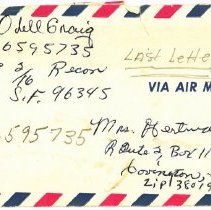 Odell Craig
6595735
2/16 Recon
S.F. 96345
Last Lette
VIA AIR M
595735
Mrs.
Route 2, Box 11
Covington,
Zip 38019